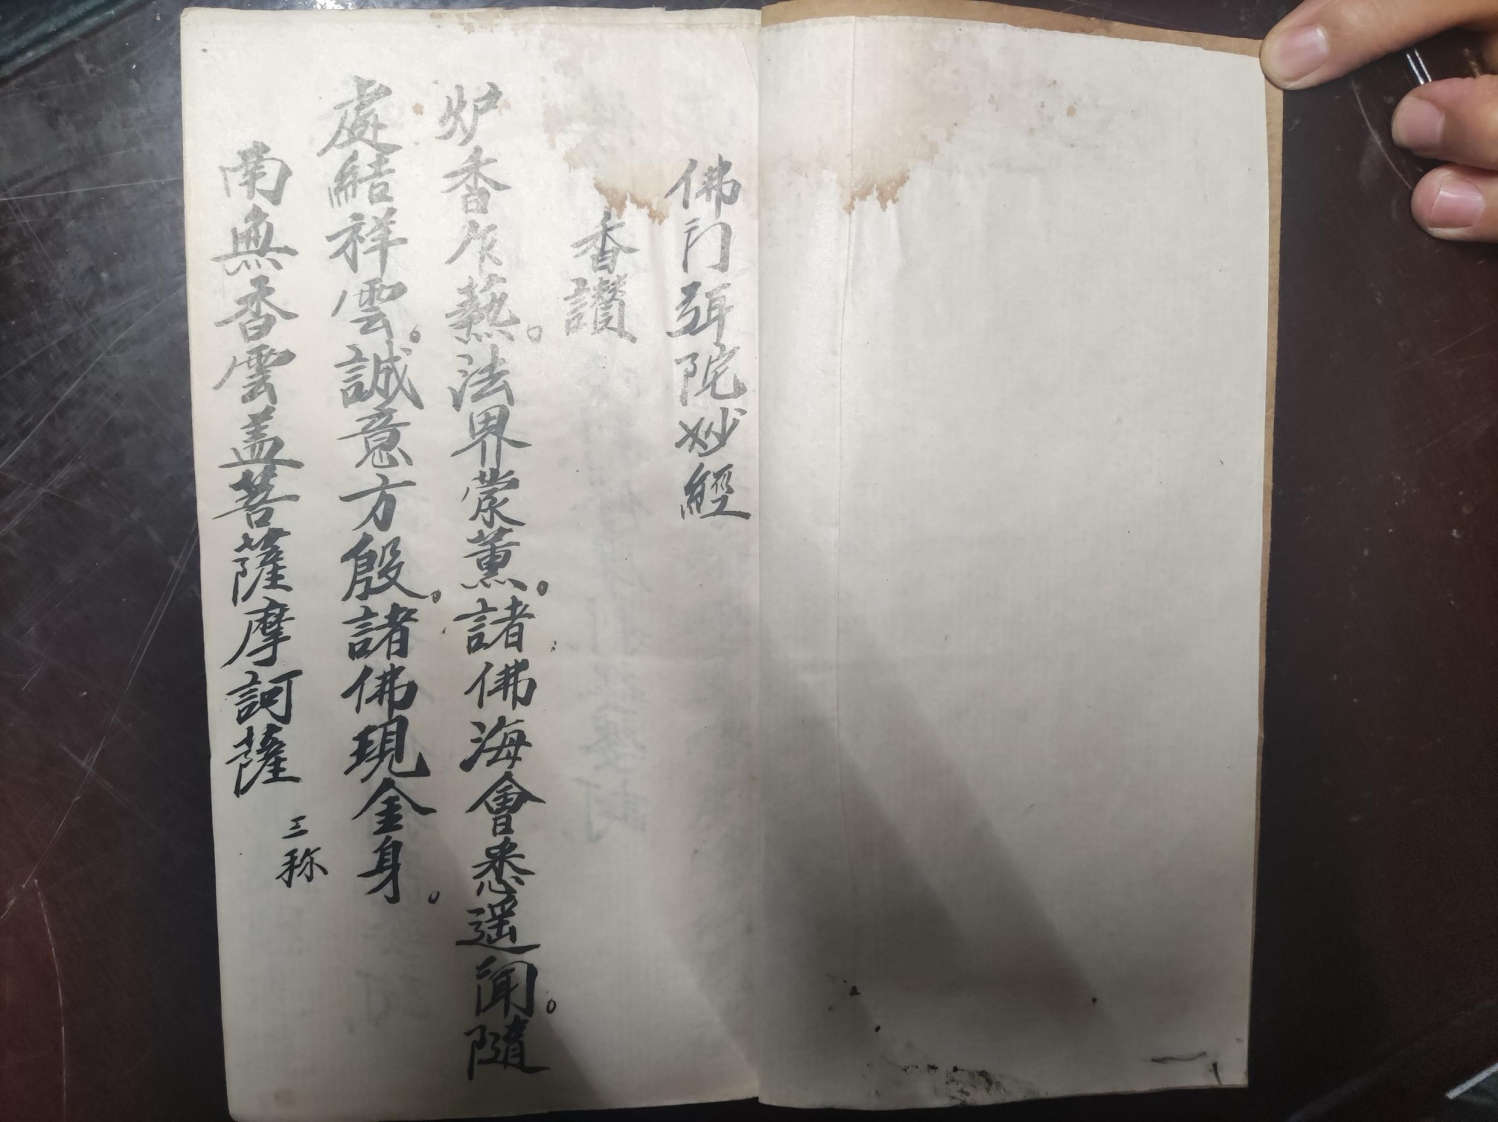 佛门弥陀妙經
香讃
炉香乍爇。法界蒙薰。諸佛海會悉遥聞。隨
處結祥雲。誠意方殷。諸佛現金身。
南無香雲盖菩薩摩訶薩
三称